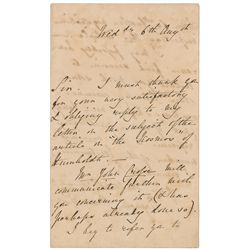 Wed dy 6th Augst
Sir. I must thank you
for your very satisfactory
& obliging reply to my
letter on the subject of the
article on "the Kosmos" of
Humboldt. —
Mr John Crosse will
communicate further with
you concerning it (& has
perhaps already done so).
I beg to refer you to